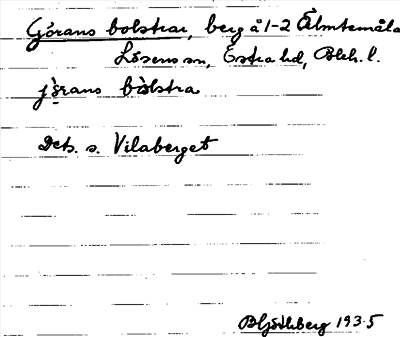 Görans bolstrar, berg å 1-2 Älmtamåla
Lösens sn, Östra hd, Blek. l.
jö̀rans bòlstra
Dets. s. Vilaberget
B Hjöthberg 1935